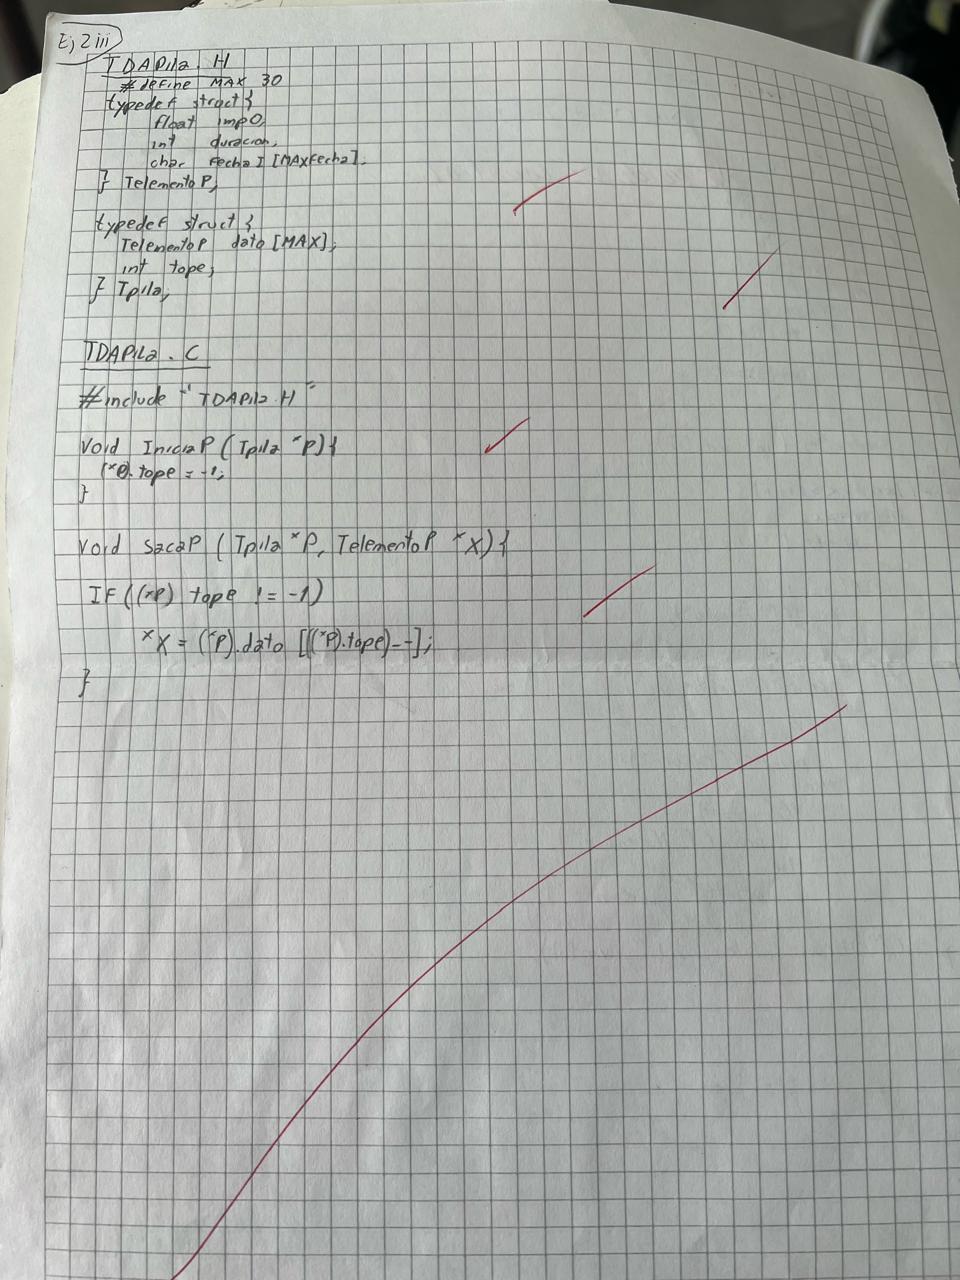 Ej 2 iii
TDAPila.H
#define MAX 30
typedef struct{
float impO,
int duracion,
char FechaI[MAXFecha].
} TelementoP,
typedef struct{
TelementoP dato [MAX];
int tope;
} Tpila,
TDAPila.C
#include "TDAPila.H"
Void IniciaP (Tpila *P){
(*P).tope = -1;
}
Void SacaP (Tpila *P, TelementoP *X){
IF((*P) tope != -1)
*X = (*P).dato [((*P).tope)--];
}